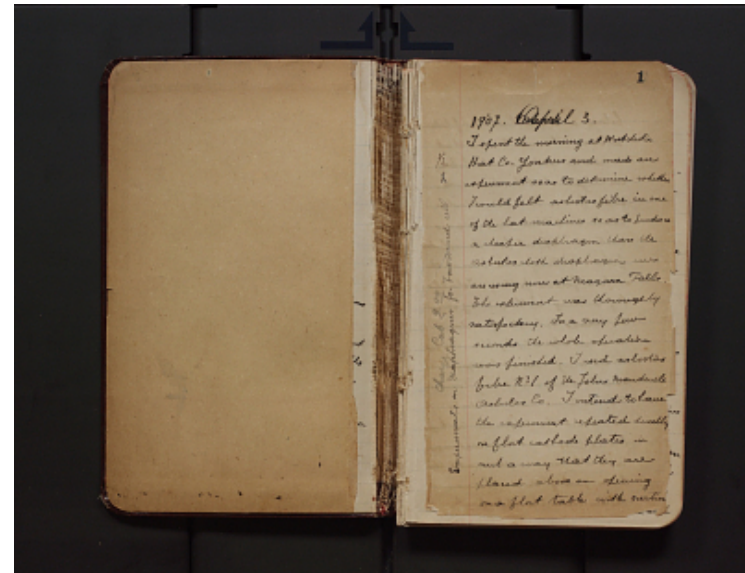 1
1907. April 3.
I spent the morning at
Hat Co. Yonkers and made an
experiment so as to determine whether
I could felt asbestos fibre in one
of the hat machines so as to produce
a cheaper diaphragm than the
asbestos cloth diaphragm we
are using now at Niagara Falls
The experiment was thoroughly
satisfactory. In a very few
seconds the whole operation
was finished. I used asbestos
fibre No 1 of the Johns Manville
Asbestos Co. I intend to have
the experiment repeated
on flat cathode plates in
such a way that they are
placed above an opening
on a flat table with
Experiments on diaphragms for Townsend cell